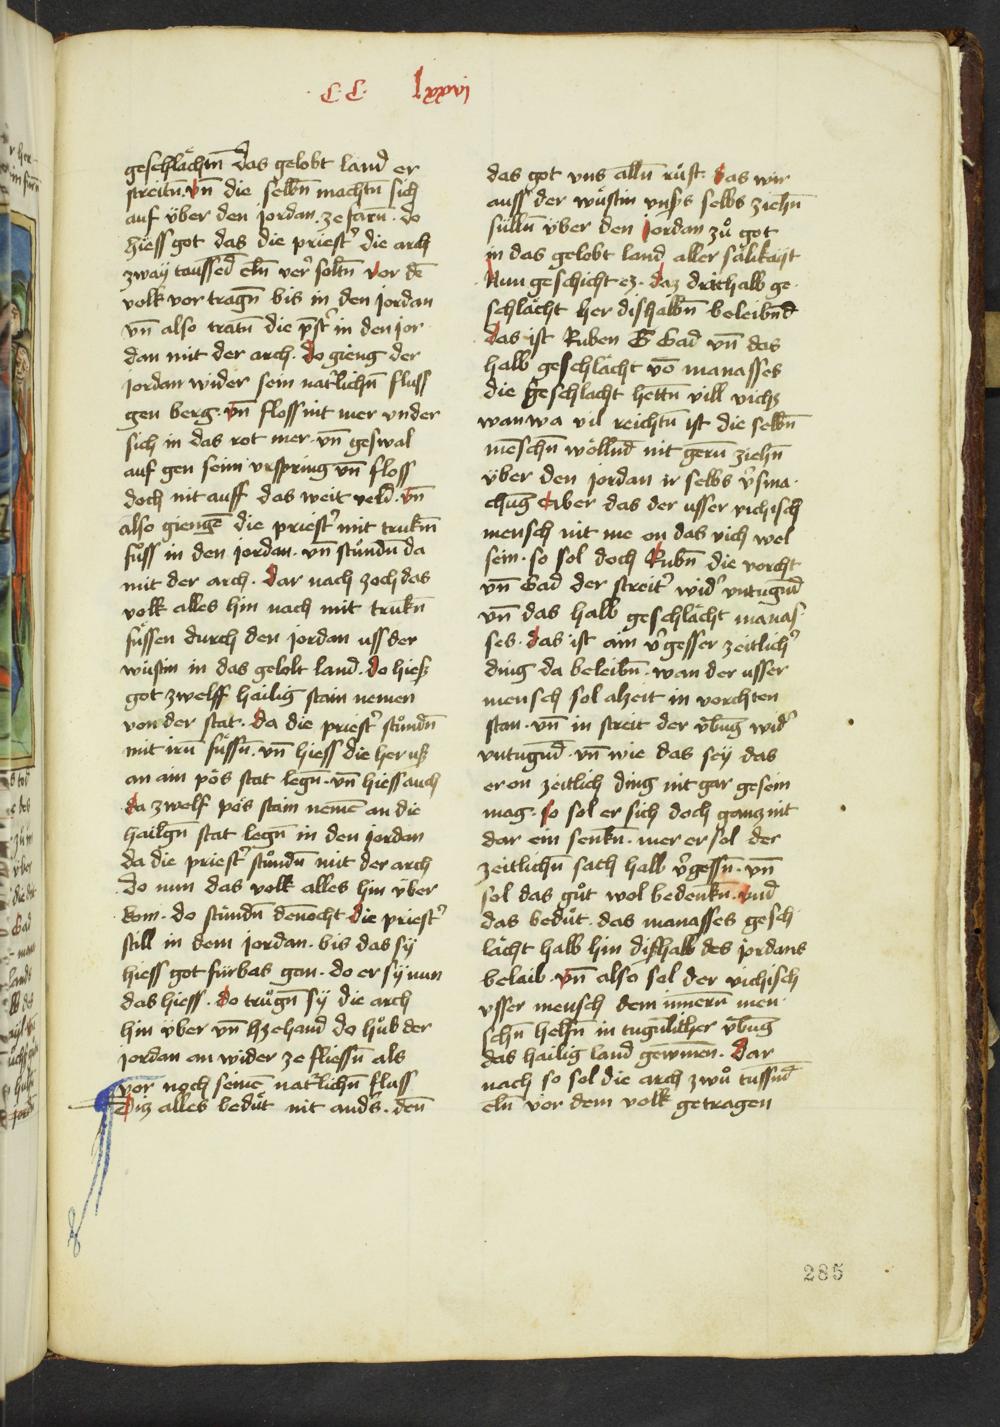 C·C· lxxvj
geschlächtn̄ das gelobt land er
streitn̄. vn̄ die selbn̄ machtn̄ sich
auf v̈ber den jordan. ze farn̄. do
hiess got das die priest' die arch
zway taussed̄ eln̄ ver' soltn̄ vor dē
volk vor tragn̄ bis in den jordan
vn̄ also tratn̄ die pst' in den jor
dan mit der arch. do gieng der
jordan wider sein nat'lichn̄ fluss
gen berg. vn̄ floss nit mer vnder
sich in das rot mer. vn̄ geswal
auf gen seim vrspring vn̄ floss
doch nit auff das weit veld. vn̄
also giengē die priest' mit trukm̄
füss in den jordan. vn̄ stu̇ndn̄ da
mit der arch. dar nach zoch das
volk alles hin nach mit trukn̄
füssen durch den jordan uss der
wüstin in das gelobt land. do hiess
got zwelff hailig stain nemen
von der stat. da die priest' stůndn̄
mit irn̄ füssn̄. vn̄ hiess die her uß
an ain pös stat legn̄. vn̄ hiess auch
da zwelf pös stain nemē an die
hailgn̄ stat legn̄ in den jordan
da die priest' stůndn̄ mit der arch
do nun das volk alles hin v̈ber
kom. do stůndn̄ dēnocht die priest'
still in dem jordan. bis das sÿ
hiess got fürbas gan. do er sÿ nun
das hiess. do trügn̄ sÿ die arch
hin v̈ber vn̄ zehand do hůb der
jordan an wider ze fliessn̄ als
vor noch seinē nat'lichn̄ fluss
Diz alles bedüt nit anders. den̄
das got vns alln̄ rüst. das wir
auss der wüstin vnsers selbs ziehn̄
sülln̄ v̈ber den jordan zů got
in das gelobt land aller sälikayt
Nun geschicht ez. daz drithalb ge
schlächt her dishalbn̄ beleibnd̄
das ist Ruben Gad vn̄ das
halb geschlächt vō manasses
die geschlacht hettn̄ vill vichs
wan wa vil reichtn̄ ist die selbn̄
mēschn̄ wöllnd nit gern̄ ziehn̄
v̈ber den jordan ir selbs v'sma
chūg Aber das der usser vichisch
mensch nit me on das vich wol
sein. so sol doch Rubn̄ die vorcht
vn̄ Gad der streit' wid' vntugnd̄
vn̄ das halb geschlächt manas
ses. das ist ain v'gesser zeitlich'
ding da beleibn̄. wan der usser
mensch sol alzeit in vorchten
stan. vn̄ in streit der v̈būg wid'
vntugnd̄. vn̄ wie das sey das
er on zeitlich ding nit gar gesein
mag. so sol er sich doch gantz nit
dar ein senkn̄. mer er sol der
zeitlichn̄ sach halb v'gessn̄. vn̄
sol das gůt wol bedenkn̄. vnd
das bedüt. das manasses gesch
lächt halb hin dishalb des jordans
belaib. vn̄ also sol der vichisch
vsser mensch dem innern̄ men
schn̄ helfn̄ in tugntlicher v̈būg
das hailig land gewinnen. Dar
nach so sol die arch zwů tussnd̄
eln̄ vor dem volk getragen
285